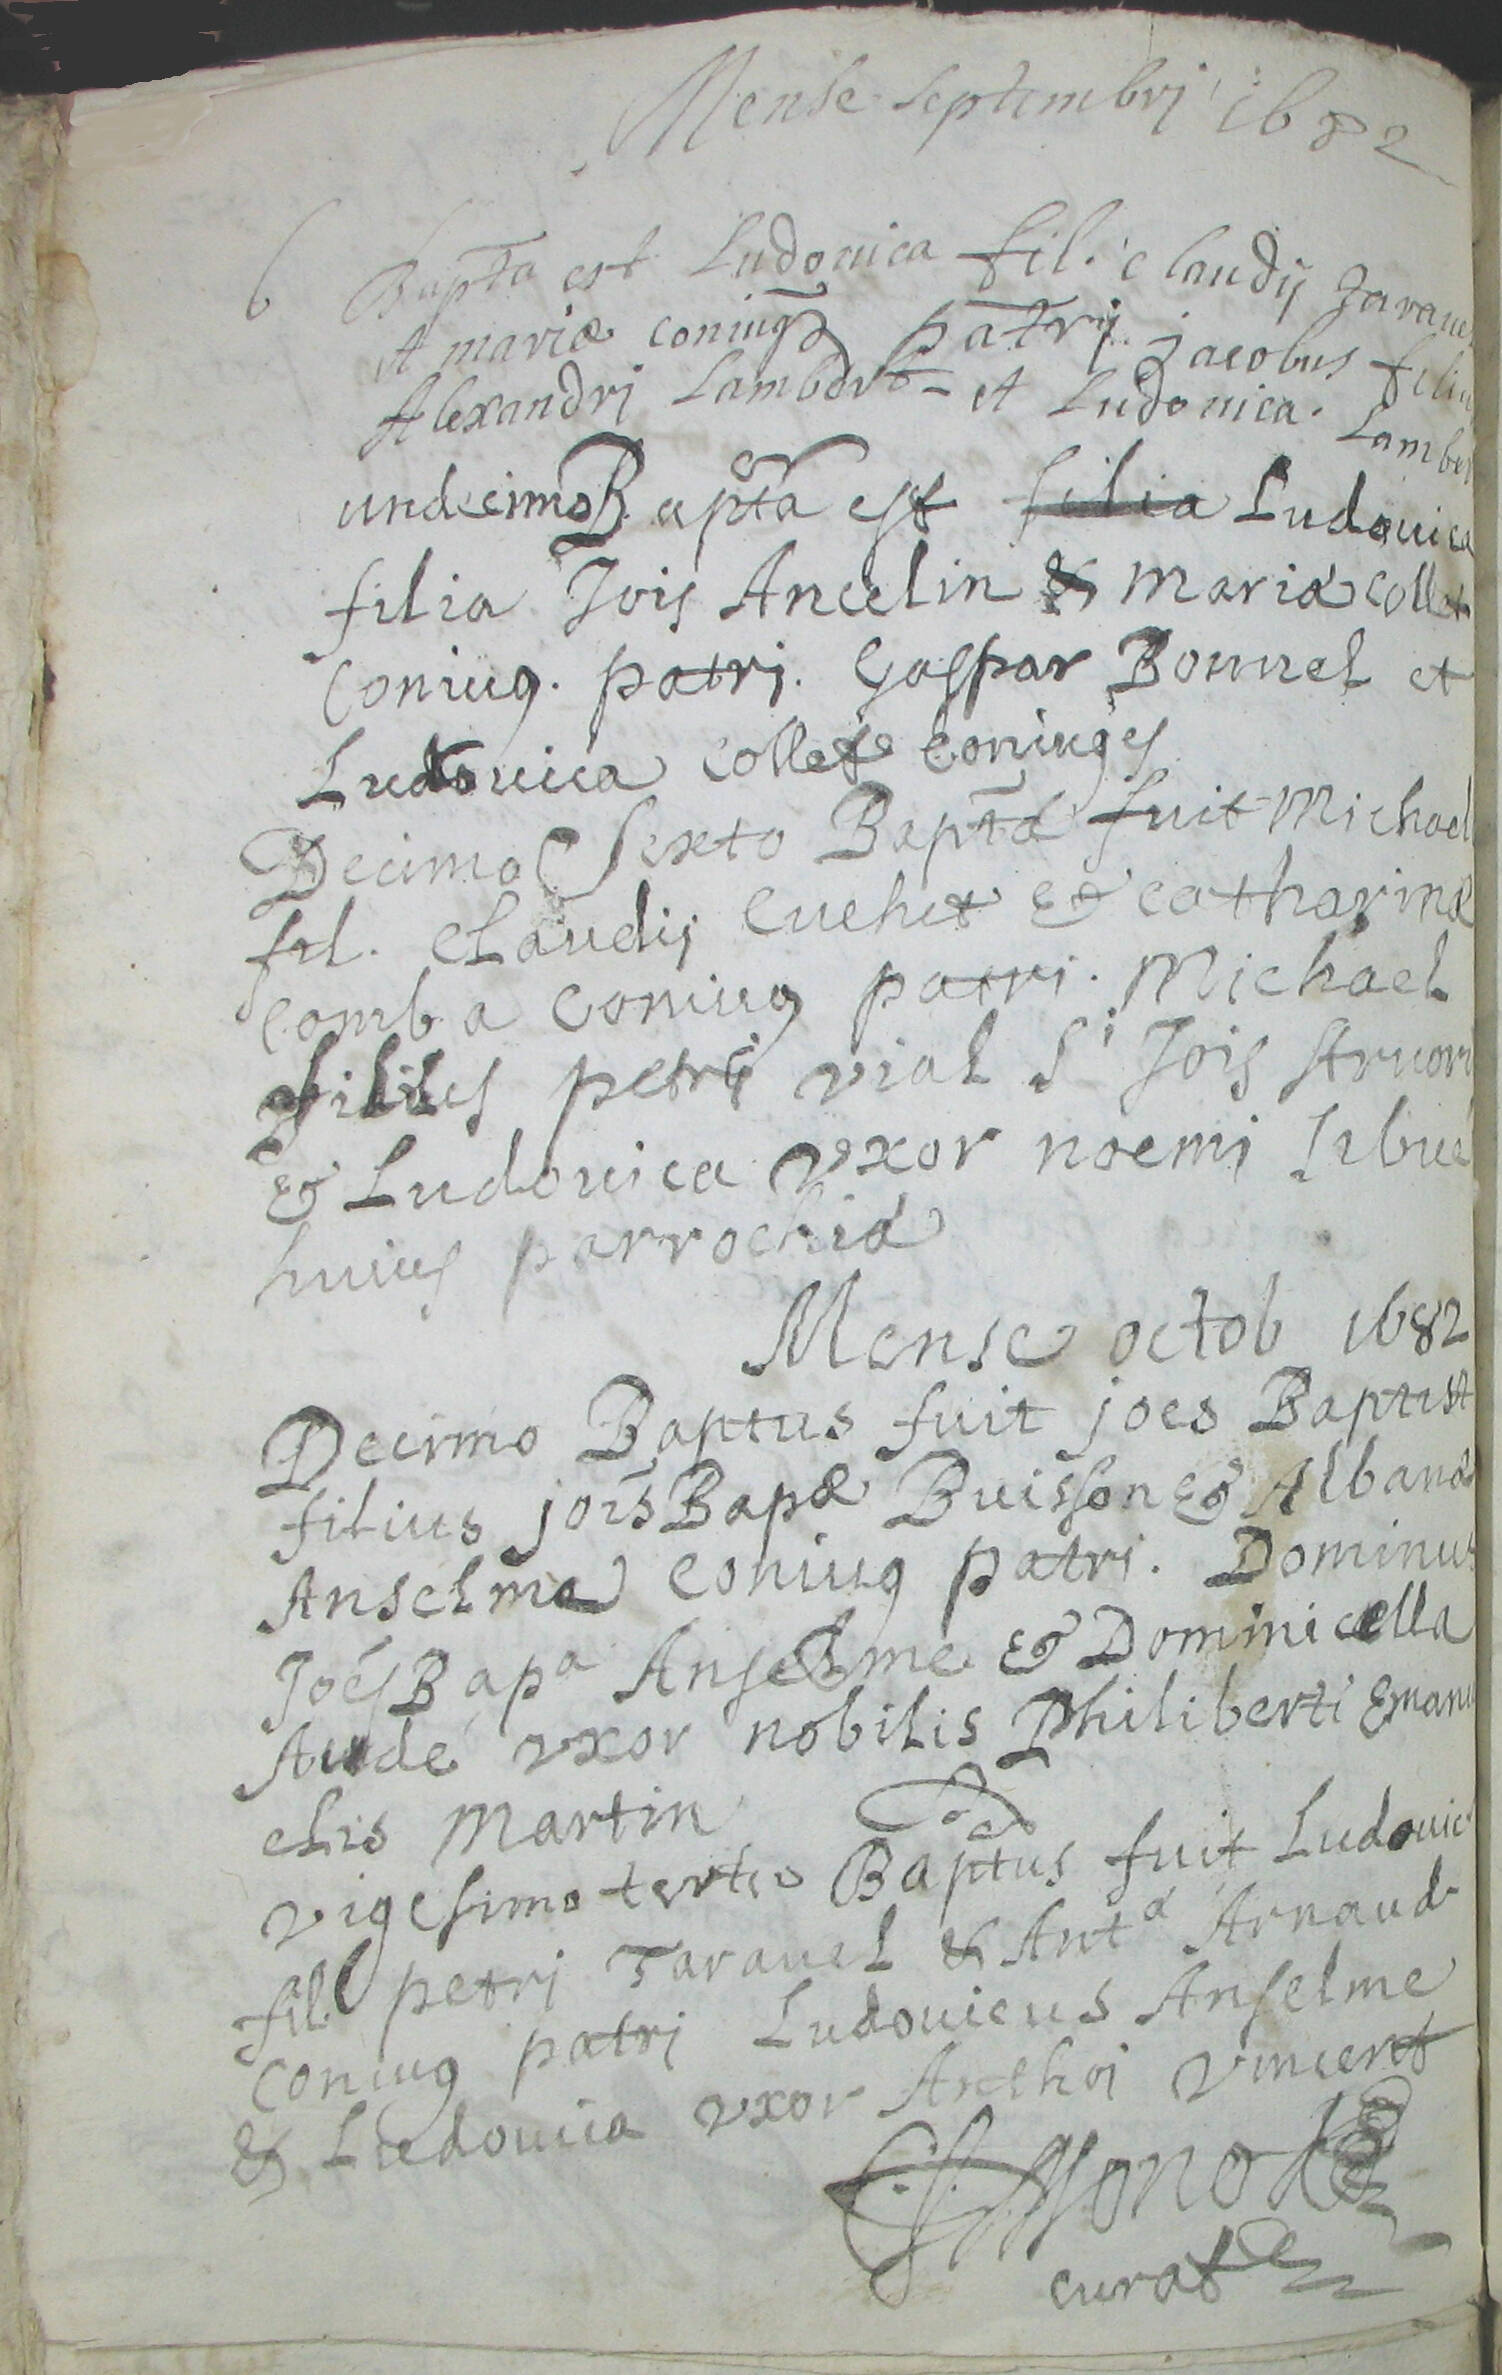 Mense septembrj 1682
6 Bapta est Ludouica fil. claudij Tarauel
et mariæ coniug patrij. jacobus filiu
Alexandrj Lambert et Ludouica. Lamber
undecimo Bapta est filia Ludouica
filia Jois Ancelin & mariæ collet
Coniug. patrj. Gaspar Bonnel et
Ludouica Collete Coniuges
Decimo Sexto Bapta fuit Michael
fil. Claudij Cuchet & catharinæ
Comba Coniug patri. Michael
filius petri vial Si Jois Aruor
& Ludouica vxor noemi
huius parrochiæ
Mense octob 1682
Decimo Baptus fuit joes Baptist
filius jois Bapæ Buisson & Albanæ
Anselma Coniug patri. Dominus
Joes Bapa Anselme & Dominicella
Aude vxor nobilis Philiberti Emanu
elis Martin
vigesimo tertio Baptus fuit Ludouic
fil. petrj Tarauel & Anta Arnaud
Coniug patrj Ludouicus Anselme
& Ludouica vxor Anthoi Vincent
curat